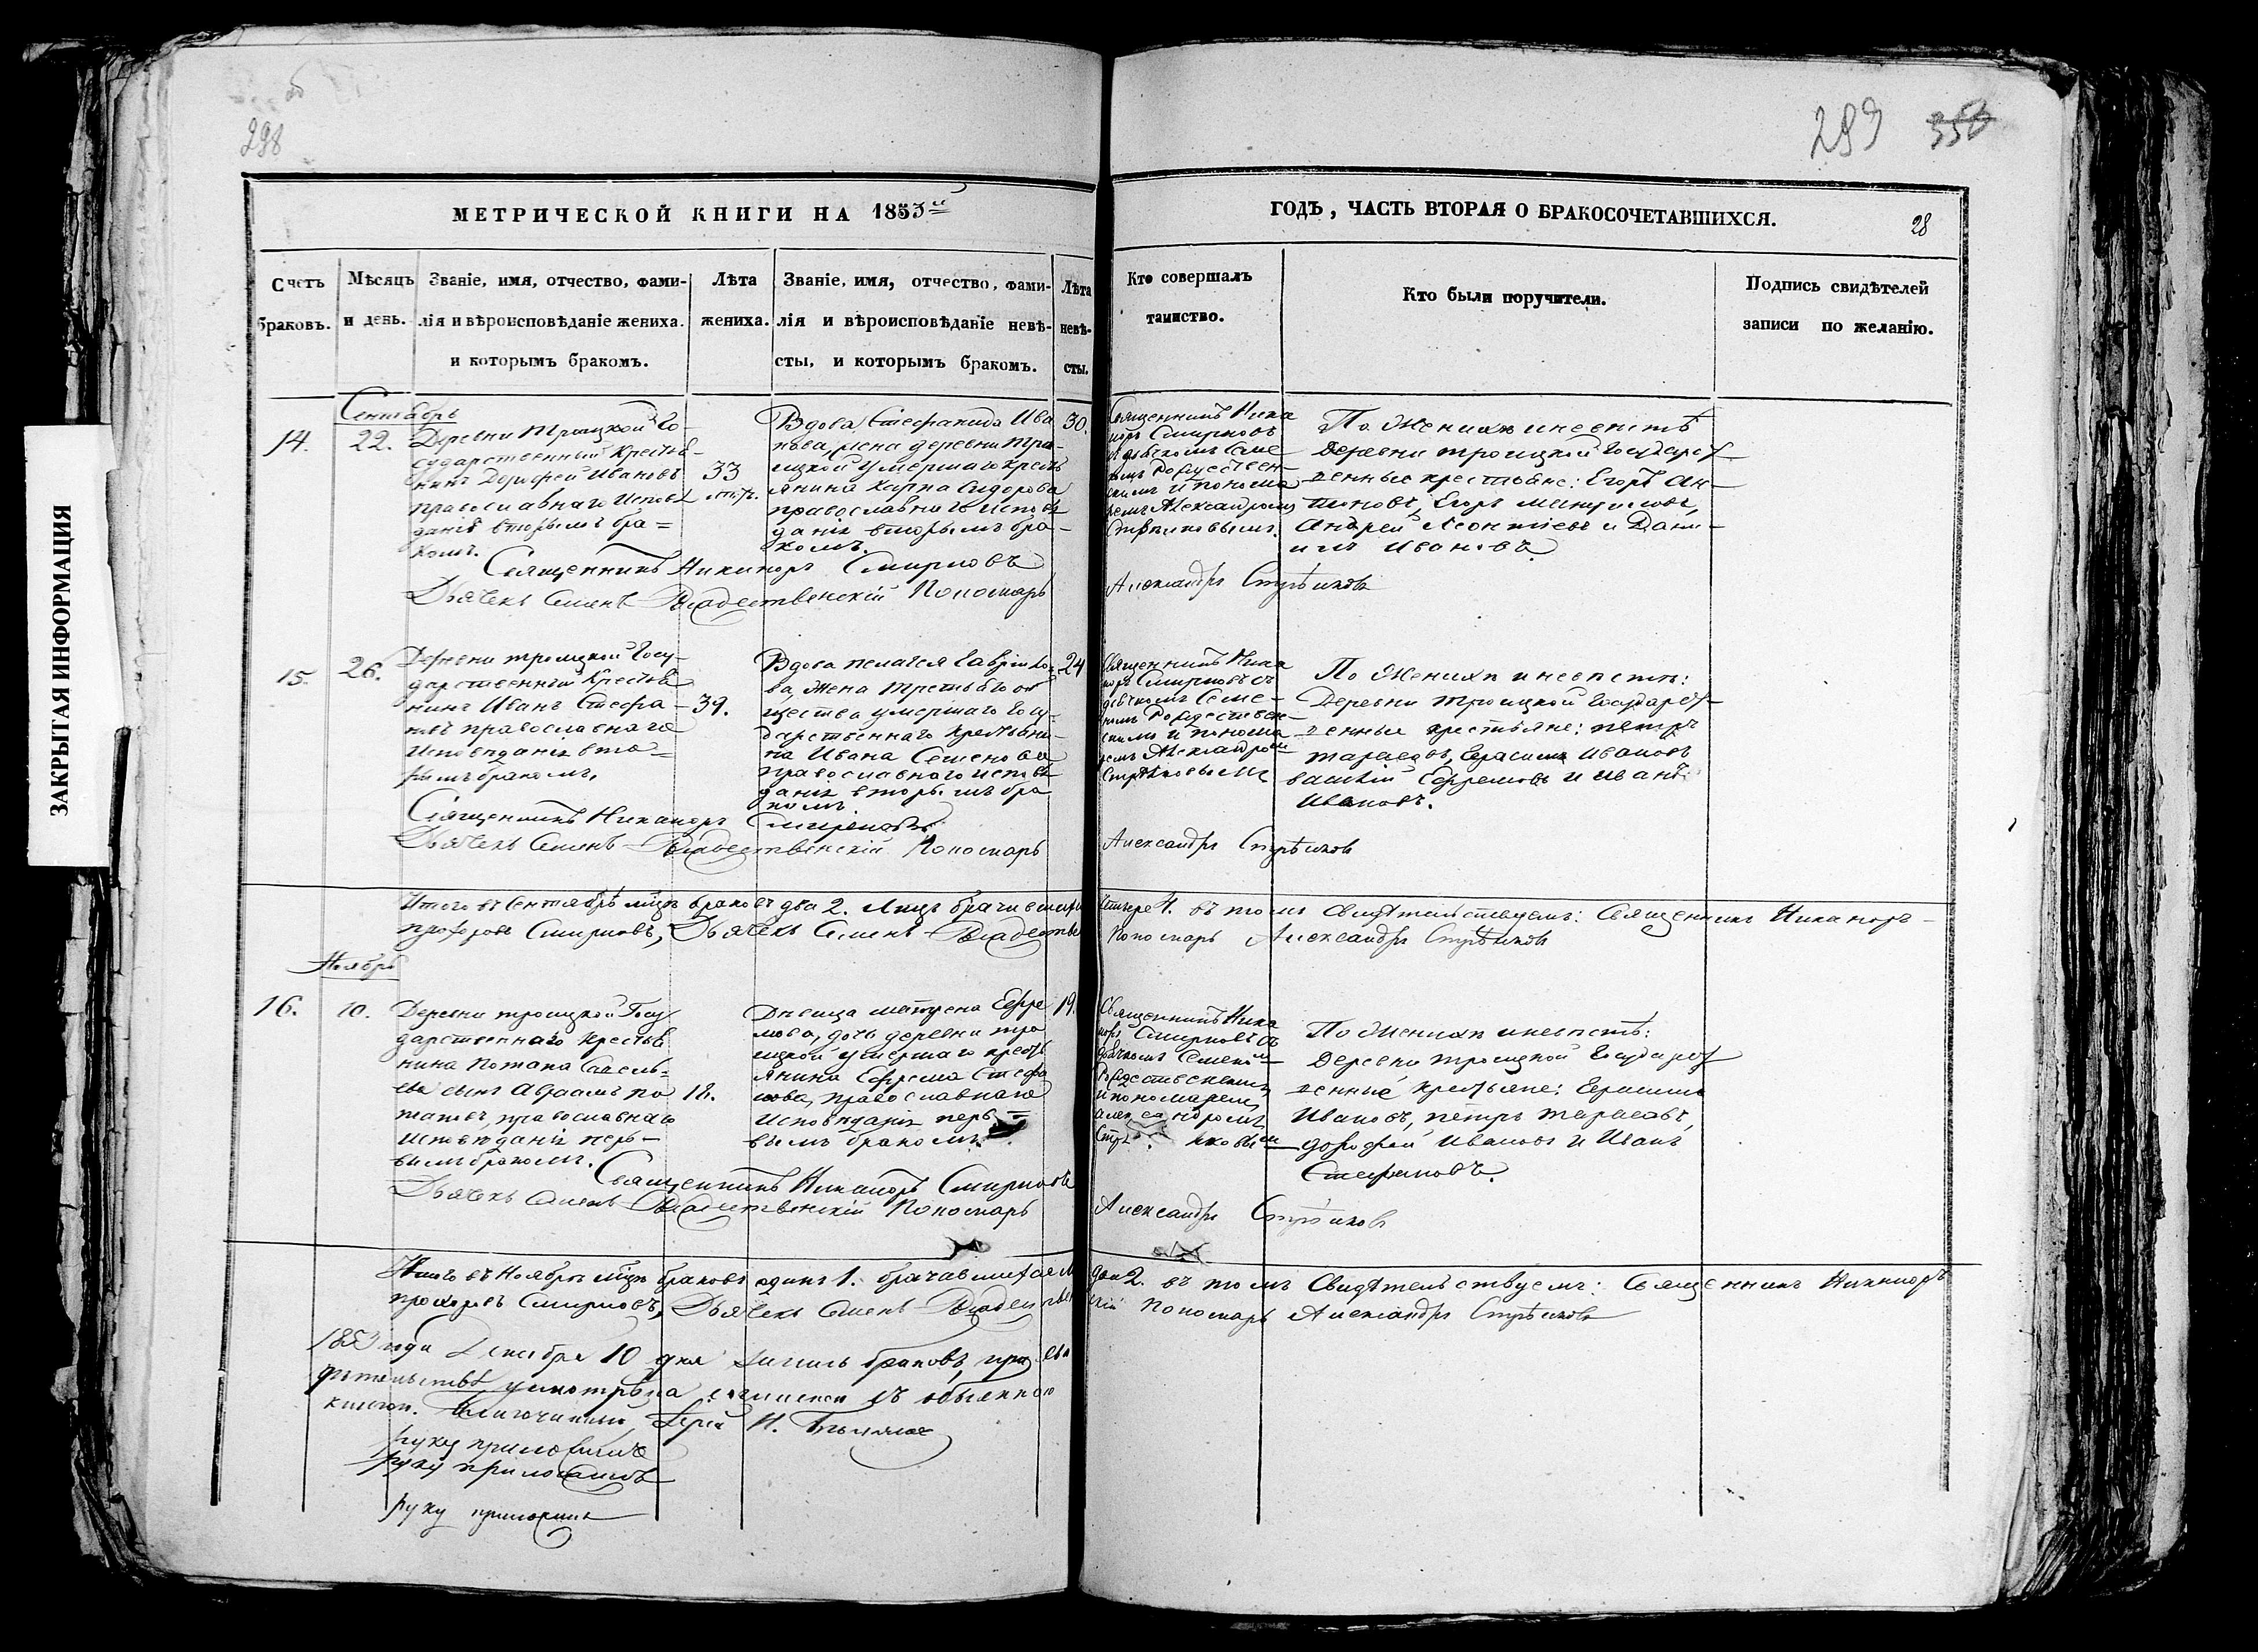 298
299 358
ЗАКРЫТАЯ ИНФОРМАЦИЯ
МЕТРИЧЕСКОЙ КНИГИ НА 1853й
ГОДЪ, ЧАСТЬ ВТОРАЯ О БРАКОСОЧЕТАВШИХСЯ.
28
Счетъ
браковъ.
Мѣсяцъ
и день.
Званіе, имя, отчество, фами-
лія и вѣроисповѣданіе жениха.
и которымъ бракомъ.
Лѣта
жениха.
Званіе, имя, отчество, фами-
лія и вѣроисповѣданіе невѣ-
сты, и которымъ бракомъ.
Лѣта
невѣ-
сты.
Кто совершалъ
таинство.
Кто были поручители.
Подпись свидѣтелей
записи по желанію.
Сентябрь
14.
22.
Деревни Троицкой Го-
сударственный крестья-
нинъ Дорофей Ивановъ
православнаго исповѣ
данія вторымъ бра=
комъ.
33
Вдова Стефанида Ива
нова, жена деревни Тро-
ицкой умершаго кресть
янина Карпа Сидорова
православнаго исповѣ
данія вторымъ бра-
комъ.
30.
Священникъ Ника
норъ Смирновъ
съ дьячкомъ Семе
номъ Рождествен-
скимъ и понома
ремъ Александромъ
Стрѣлковымъ.
По Женихѣ и невѣстѣ
Деревни Троицкой Государст-
венные крестьяне: Егоръ Ан-
тоновъ, Егоръ
Андрей Леонтіевъ и Дани-
илъ Ивановъ.
Священникъ Никаноръ Смирновъ
Дьячекъ Семенъ Рождественскій Пономарь
Александръ Стрѣлковъ
15.
26.
Деревни Троицкой Госу-
дарственный крестья
нинъ Иванъ Стефа-
новъ православнаго
исповѣданія вто=
рымъ бракомъ.
39.
Вдова Пелагея Гаврило-
ва, жена Третьяго об
щества умершаго Госу-
дарственнаго крестьяни-
на Ивана Семенова
православнаго исповѣ
данія вторымъ бра
комъ.
24
Священникъ Ника
норъ Смирновъ съ
дьячкомъ Семе-
номъ Рождествен-
скимъ и понома
ремъ Александромъ
Стрѣлковымъ
По Женихѣ и невѣстѣ:
Деревни Троицкой Государст-
венные крестьяне: Петръ
Тарасовъ, Герасимъ Ивановъ
Василій Ефремовъ и Иванъ
Ивановъ.
Священникъ Никаноръ Смирновъ
Дьячекъ Семенъ Рождественскій Пономарь
Александръ Стрѣлковъ
Итого въ Сентябрѣ мѣцѣ браковъ два 2. Лицъ
четыре 4. въ томъ свидѣтельствуемъ: Священникъ Никаноръ
Прохоровъ Смирновъ, Дьячекъ Семенъ Рождестве
Пономарь Александръ Стрѣлковъ
Ноябрь
16.
10.
Деревни Троицкой Госу
дарственнаго крестья
нина Потапа Савель=
ева сынъ Авраамъ По
таповъ, православнаго
исповѣданія пер-
вымъ бракомъ.
18.
Дѣвица Матрена Ефре
мова, дочь деревни Тро
ицкой умершаго кресть
янина Ефрема Стефа
нова, православнаго
исповѣданія пер=
вымъ бракомъ.
19.
Священникъ Ника
норъ Смирновъ съ
дьячкомъ Семеномъ
Рождественскимъ
и пономаремъ
Александромъ
Стрѣлковымъ
По Женихѣ и невѣстѣ:
Деревни Троицкой Государст
венные крестьяне: Герасимъ
Ивановъ, Петръ Тарасовъ,
Дорофей Ивановъ и Иванъ
Стефановъ.
Священникъ Никаноръ Смирновъ
Дьячекъ Семенъ Рождественскій Пономарь
Александръ Стрѣлковъ
Итого въ Ноябрѣ мѣцѣ браковъ одинъ 1.
два 2. въ томъ свидѣтельствуемъ: Священникъ Никаноръ
Прохоровъ Смирновъ, Дьячекъ Семенъ Рождествен
скій Пономарь Александръ Стрѣлковъ
1853 года Декабря 10 дня запись браковъ, при сви
дѣтельствѣ усмотрѣна согласною съ обыскною
книгою. Благочинный, Іерей И.
руку приложилъ
руку приложилъ
руку приложилъ